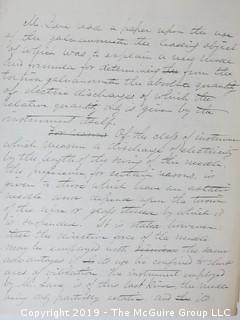 Mr. Lane read a paper upon the use
of the galvanometer the leading object
of which was to explain a new mode
and formula for determining from the
torsion galvanometer the absolute quantity
of electric discharges of which the
relative quantity is given by the
instrument itself.
Of the class of instruments
which measure a discharge of electricity
by the length of the swing of the needle,
the preference for certain reasons, is
given to those which have an astatic
needle and depend upon the torsion
of the wire or glass thread by which it
is suspended. It is stated however
that the directive force of the needle
may be employed with the same
advantages if it be not confined to short
arcs of vibration. The instrument employed
by Mr. Lane is of this last kind, the needle
being only partially astatic and its
Copyright 2019 - The McGuire Group LLC